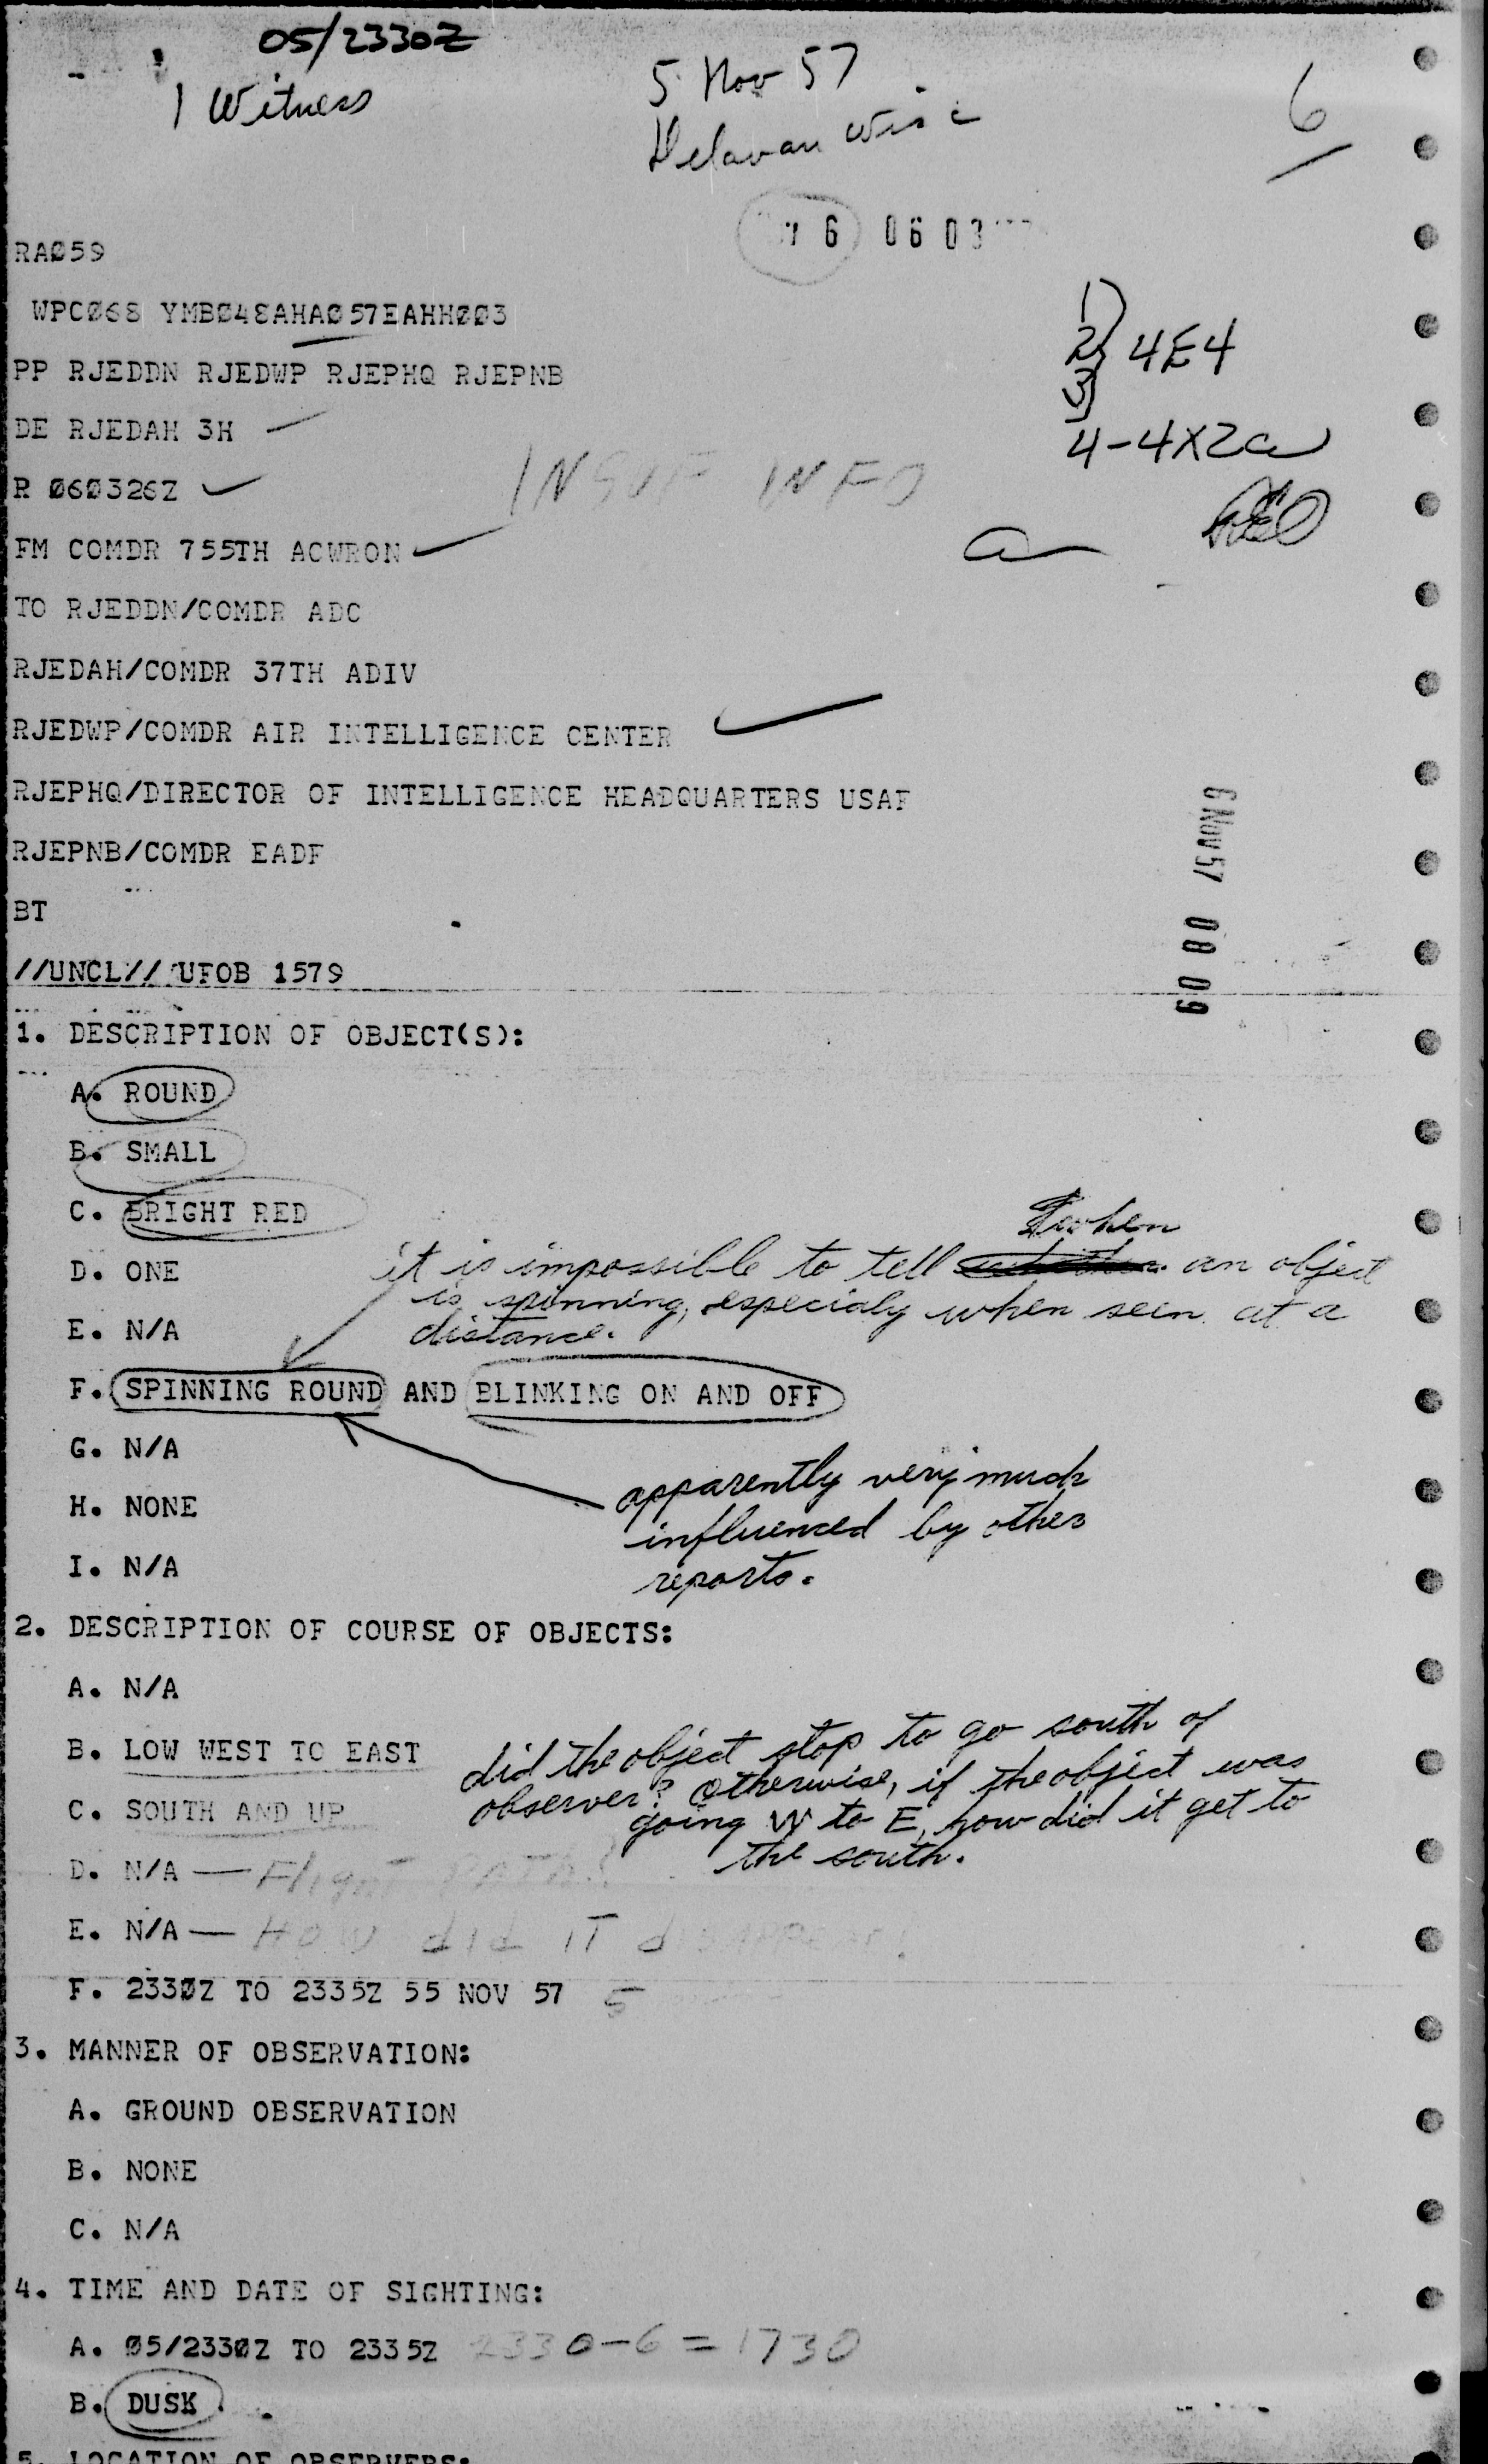 05/2330Z
1 Witness
5 Nov 57
Delavan Wisc
6
6 06 03
RAØ59
WPCØ68 YMBØ48AHAØ57EAHHØØ3
1)
2) 4E4
3)
PP RJEDDN RJEDWP RJEPHQ RJEPNB
DE RJEDAH 3H
4-4X2a
R Ø6Ø326Z
INSUF INFO
FM COMDR 755TH ACWRON
TO RJEDDN/COMDR ADC
RJEDAH/COMDR 37TH ADIV
RJEDWP/COMDR AIR INTELLIGENCE CENTER
RJEPHQ/DIRECTOR OF INTELLIGENCE HEADQUARTERS USAF
6 NOV 57 08 09
RJEPNB/COMDR EADF
BT
//UNCL// UFOB 1579
1. DESCRIPTION OF OBJECT(S):
A. ROUND
B. SMALL
C. BRIGHT RED
when
it is impossible to tell an object
D. ONE
is spinning, especialy when seen at a
E. N/A
distance.
F. SPINNING ROUND AND BLINKING ON AND OFF
G. N/A
apparently very much
H. NONE
influenced by other
I. N/A
reports.
2. DESCRIPTION OF COURSE OF OBJECTS:
A. N/A
B. LOW WEST TO EAST
did the object stop to go south of
C. SOUTH AND UP
observer? Otherwise, if the object was
going W to E, how did it get to
the south.
D. N/A — Flight PATH?
E. N/A — HOW did IT disappear?
F. 233ØZ TO 2335Z 55 NOV 57 5
3. MANNER OF OBSERVATION:
A. GROUND OBSERVATION
B. NONE
C. N/A
4. TIME AND DATE OF SIGHTING:
A. Ø5/233ØZ TO 2335Z 2330-6 = 1730
B. DUSK
5. LOCATION OF OBSERVERS: